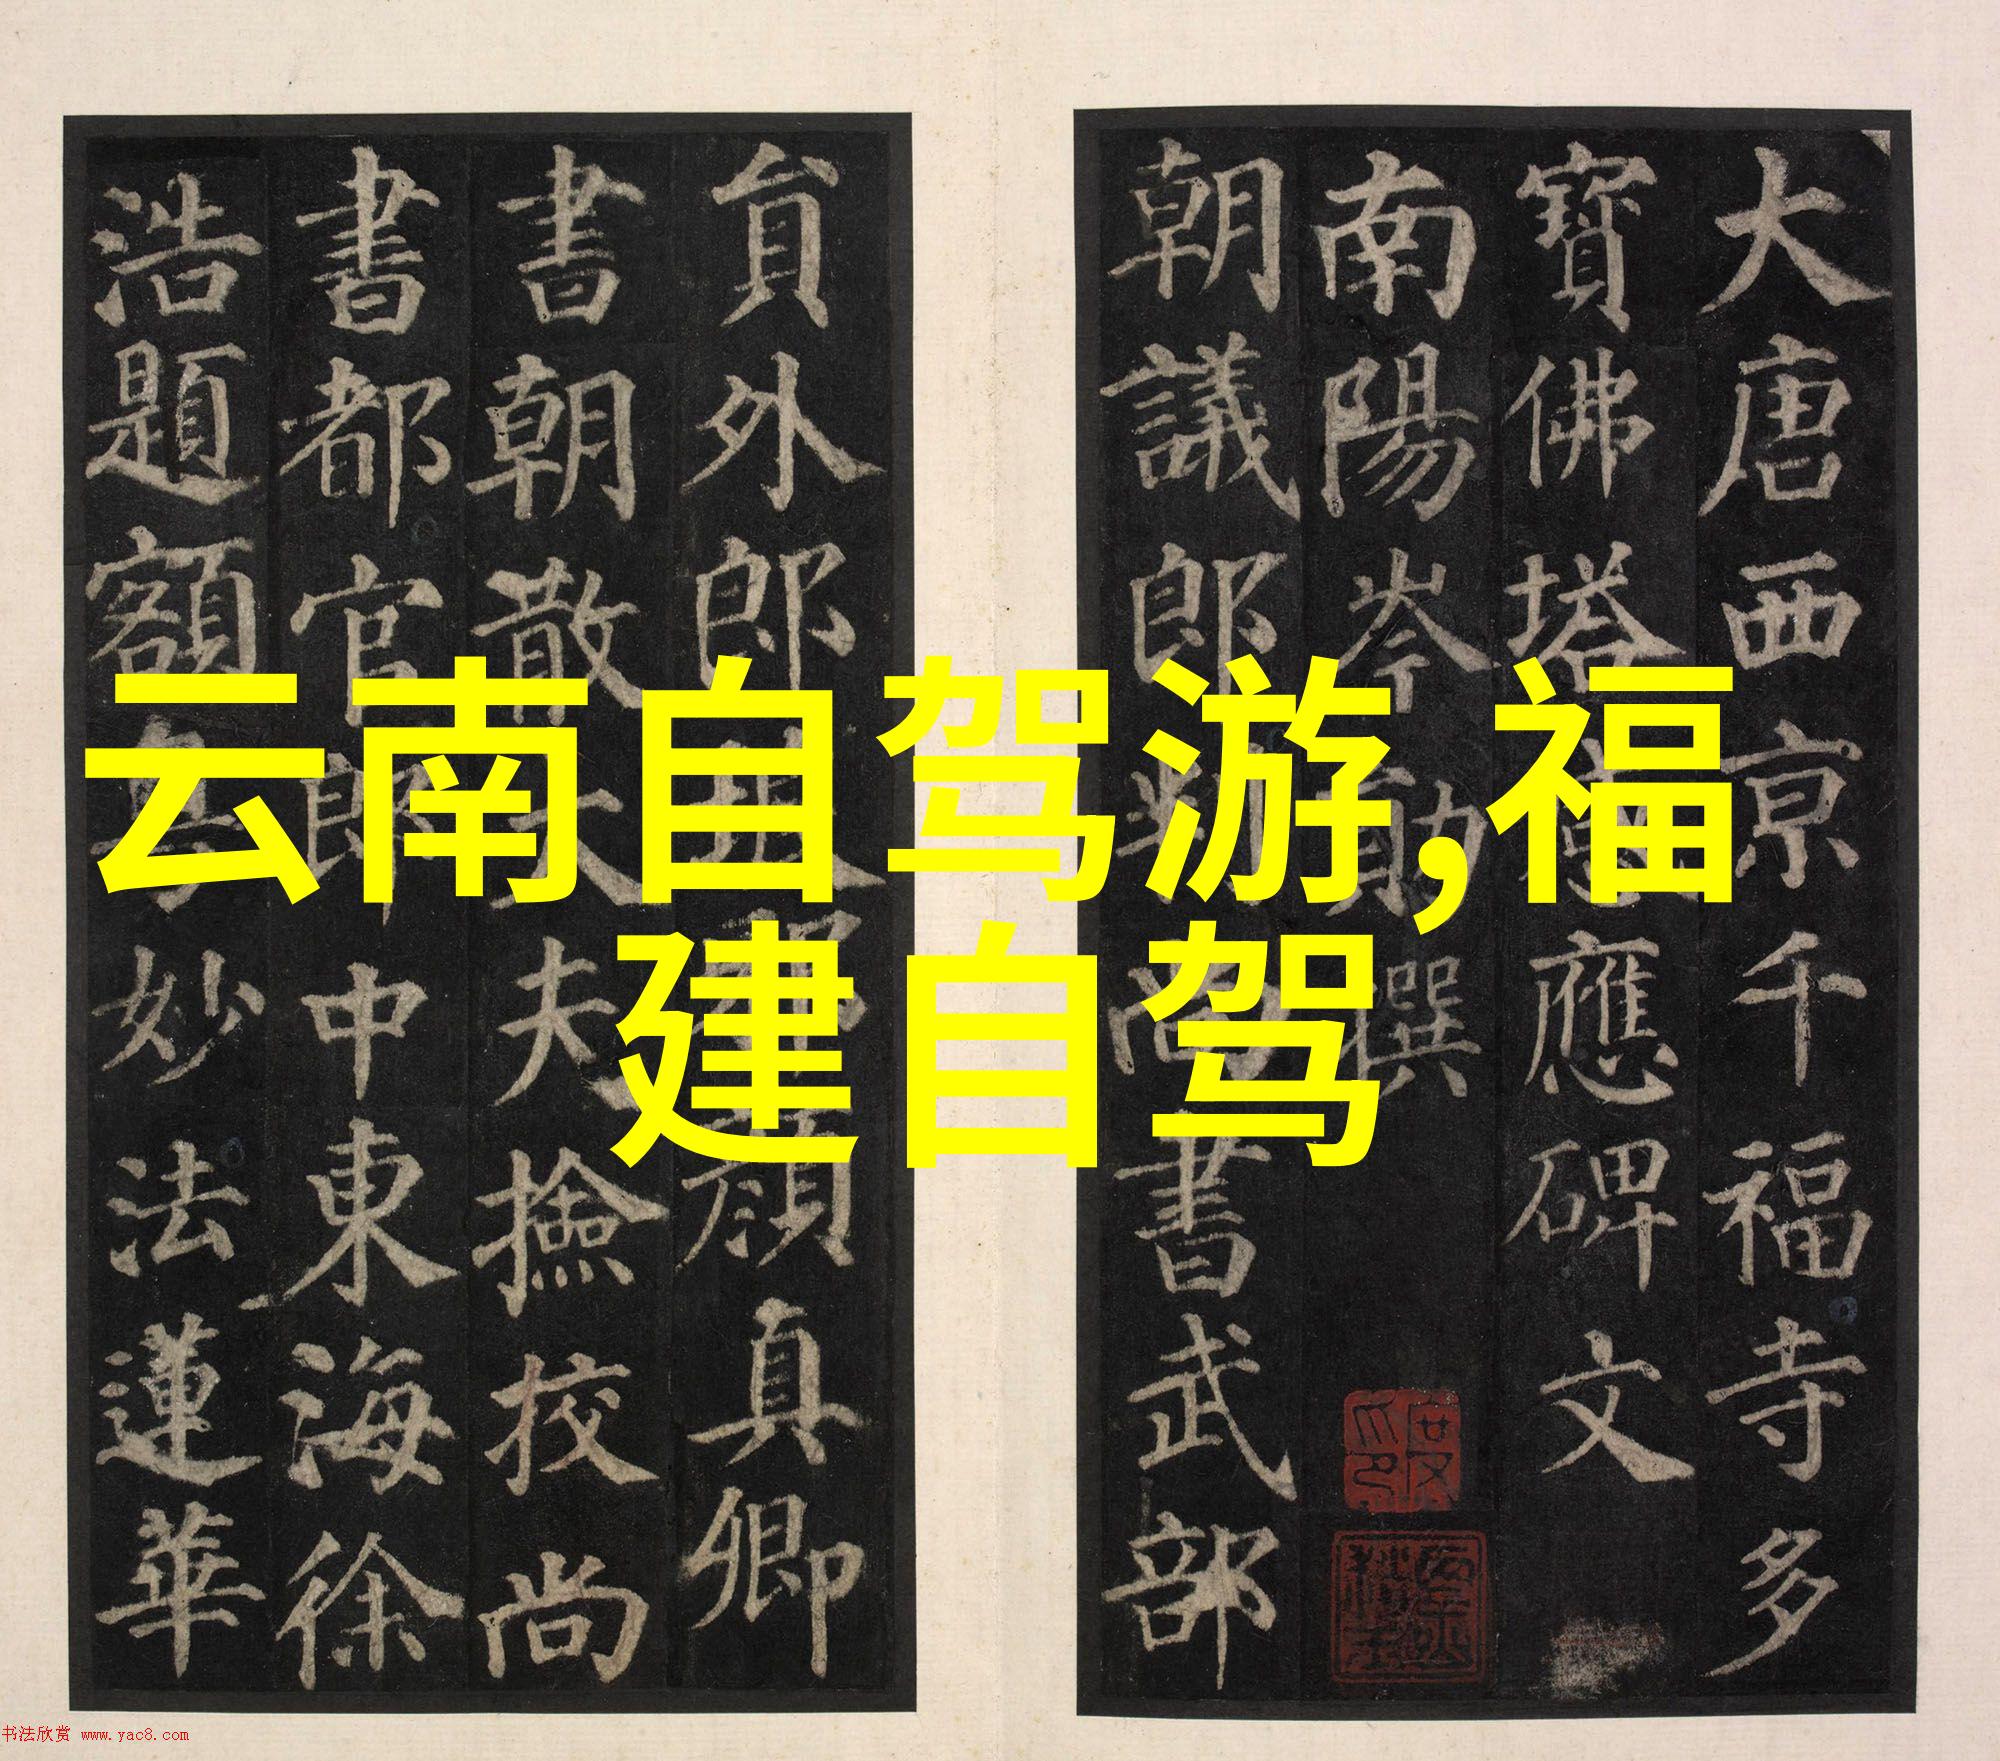 大唐西京千福寺多
寶佛塔感應碑文
南陽岑勛撰
朝議郎判尚書武部
員外郎琅邪顏真卿
書朝散大夫撿校尚
書都官郎中東海徐
浩題額
妙法蓮華
云南自驾游,福
建自驾
书法欣赏 www.yac8.com